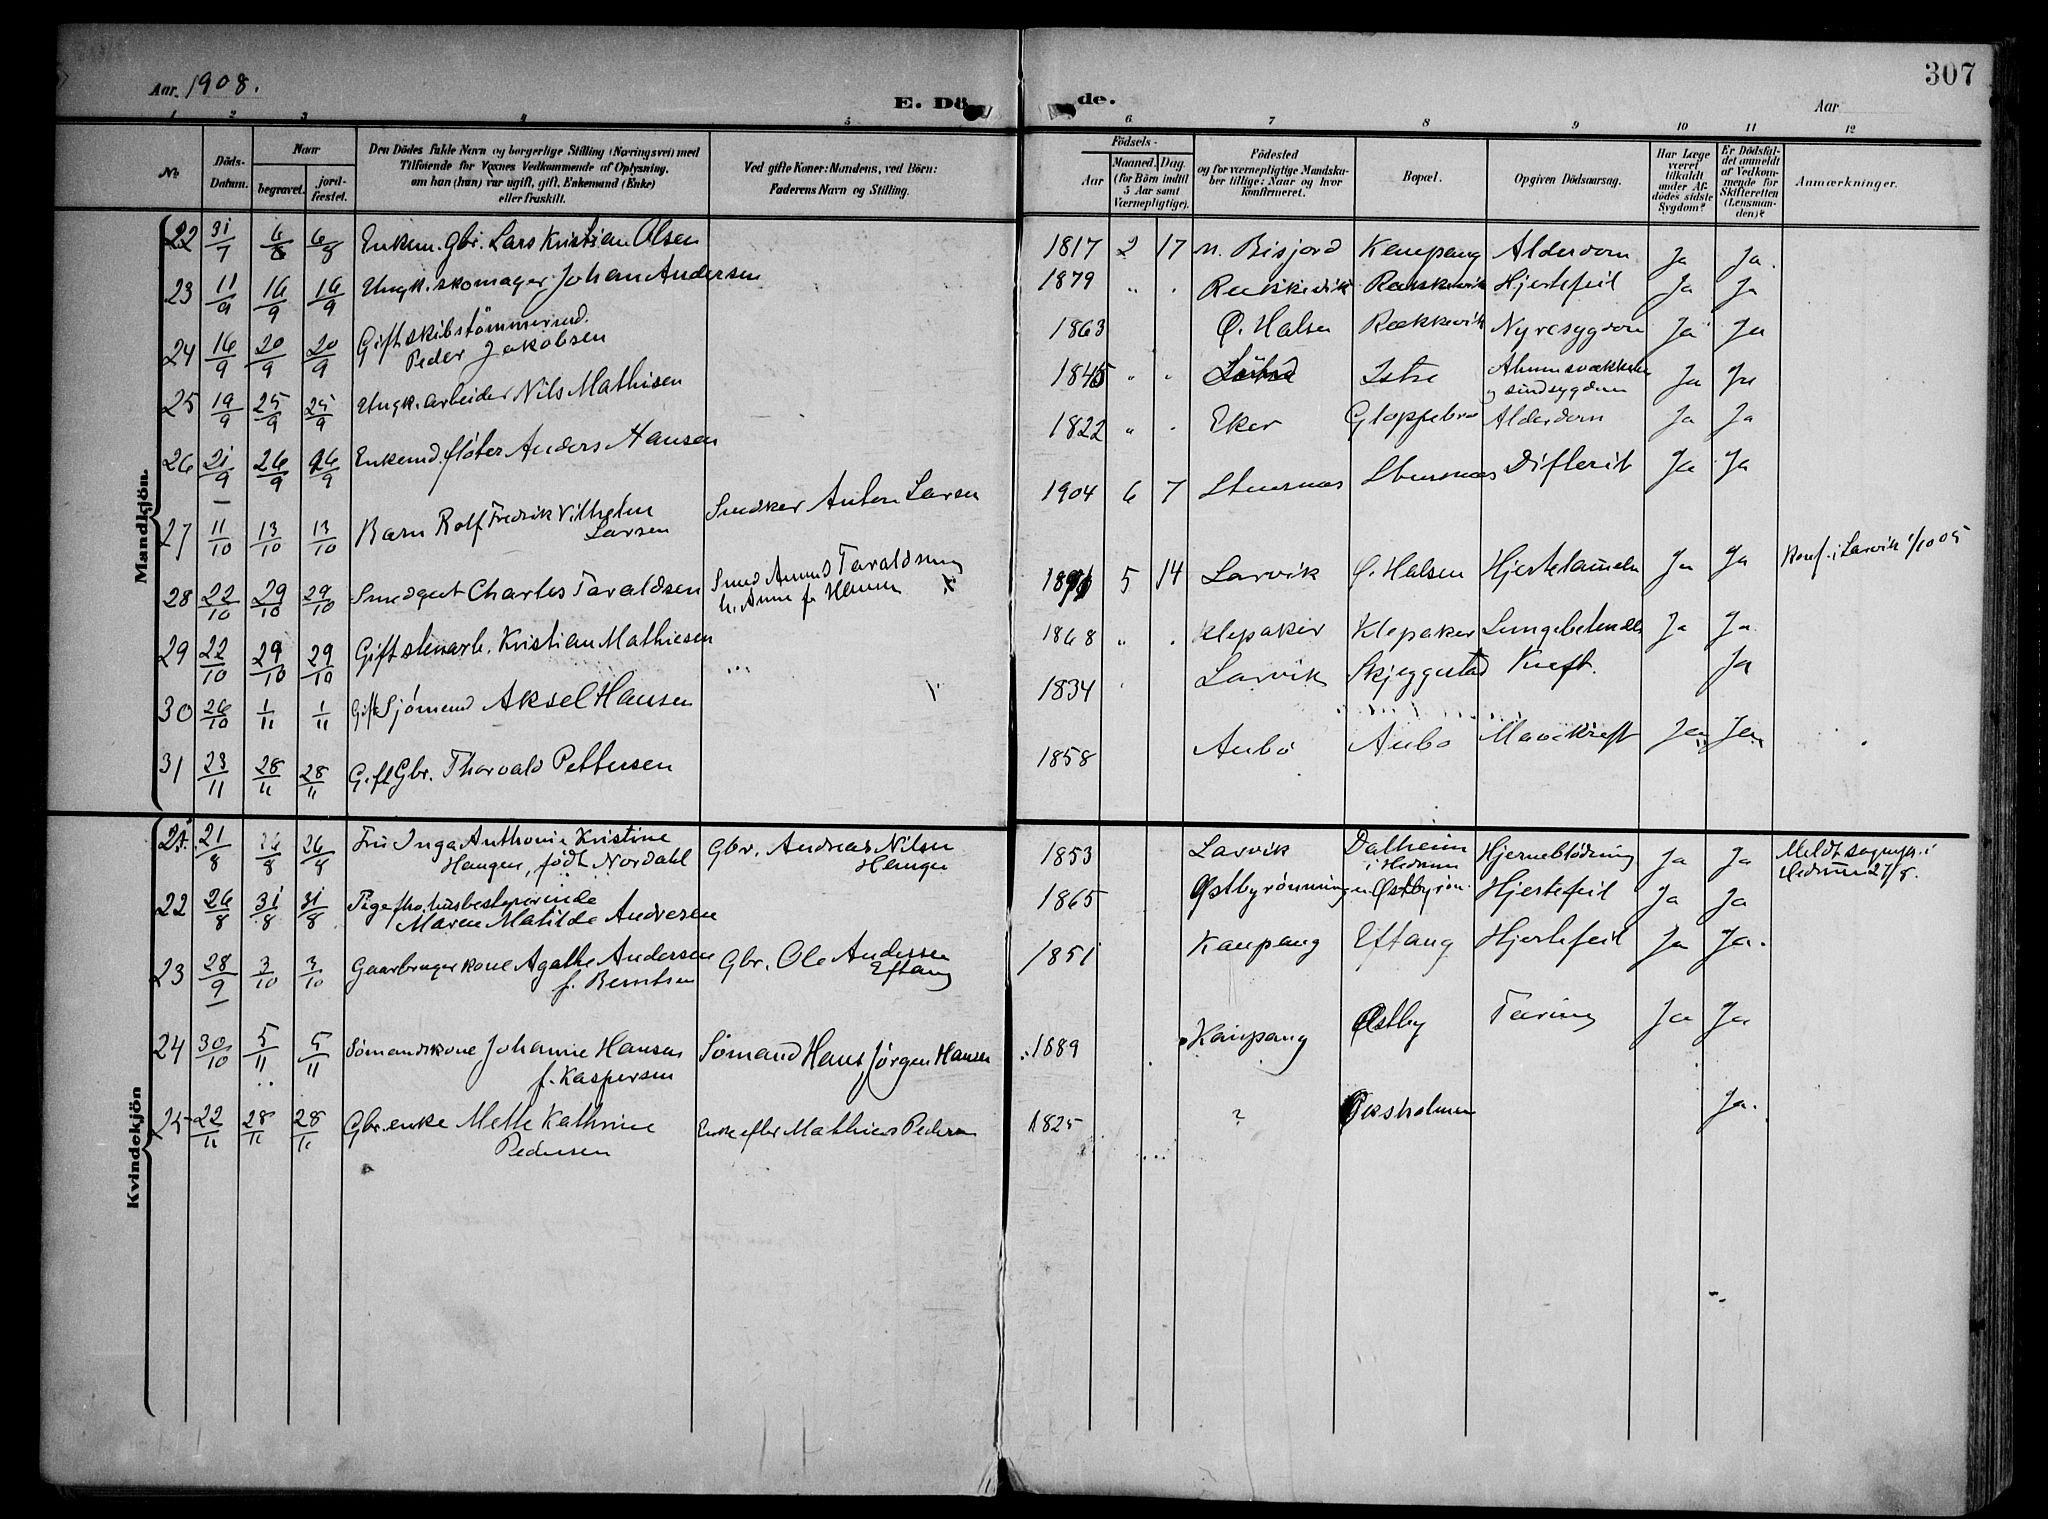 307
Aar. 1908.
E. Dö de.
Aar
1 2 3 4 5 6 7 8 9 10 11 12
No.
Döds-Datum.
Naar
begravet.
jordfæstet.
Den Dödes fulde Navn og borgerlige Stilling (Næringsvei) med
Tilföiende for Voxnes Vedkommende af Oplysning,
om han (hun) var ugift, gift, Enkemand (Enke)
eller fraskilt.
Ved gifte Koner: Mandens, ved Börn:
Faderens Navn og Stilling.
Födsels-
Aar
Maaned. Dag.
(for Börn indtil
5 Aar samt
Værnepligtige).
Födested
og for værnepligtige Mandska-
ber tillige: Naar og hvor
konfirmeret.
Bopæl.
Opgiven Dödsaarsag.
Har Læge
været
tilkaldt
under Af-
dödes sidste
Sygdom?
Er Dödsfal-
det anmeldt
af Vedkom-
mende for
Skifteretten
(Lensman-
den)?
Anmærkninger.
Mandkjön
22 31/7 6/8 6/8 Enkem. gbr. Lars Kristian Olsen 1817 2 17 n. Bisjord Kaupang Alderdom Ja Ja.
23 11/9 16/9 16/9 Ungk. skomager Johan Andersen 1879 " . Rækkevik Rækkevik Hjertefeil Ja Ja
24 16/9 20/9 20/9 Gift skibstömmermd.
Peder Jakobsen 1863 Ø. Halsen Rækkevik Nyresygdom Ja Ja
25 19/9 25/9 25/9 Ungk. arbeider Nils Mathisen 1845 " . Istre Almensvækkelse
og sindsygdom Ja Ja
26 21/9 26/9 26/9 Enkemd. fløter Anders Hansen 1822 " . Eker Gloppebro Alderdom Ja Ja
27 11/10 13/10 13/10 Barn Rolf Fredrik Vilhelm
Larsen Snedker Anton Larsen 1904 6 7 Stensnæs Stensnæs Difterit Ja Ja
28 22/10 29/10 29/10 Smedgut Charles Taraldsen Smed Taraldsen
h. Anne f. Hansen 5 14 Larvik Ø. Halsen Hjertelamelse Ja Ja Konf. i Larvik 1/10 05
29 22/10 29/10 29/10 Gift stenarb. Kristian Mathiesen 1868 " . Klepaker Klepaker Lungebetendelse Ja Ja
30 26/10 1/11 1/11 Gift Sjømand Aksel Hansen 1834 Larvik Skjeggestad Kreft. Ja
31 23/11 28/11 28/11 Gift Gbr. Thorvald Pettersen 1858 Aubø Aubø Mavekreft Ja Ja
Kvindekjön
21. 21/8 26/8 26/8 Fru Inga Anthonie Kristine
Haugen, født Nordahl Gbr. Andreas Nilsen
Haugen 1853 Larvik Dalheim
i Hedrum Hjerneblödning Ja Ja Meldt sognepr. i
Hedrum 27/8.
22 26/8 31/8 31/8 Pige fhv. husbestyrerinde
Maren Matilde Andresen 1865 Østbyrønningen Østbyrøn. Hjertefeil Ja Ja
23 28/9 3/10 3/10 Gaarbruger kone Agathe Andersen
f. Berntsen Gbr. Ole Andersen
Eftang 1851 Kaupang Eftang Hjertefeil Ja Ja.
24 30/10 5/11 5/11 Sømandskone Johanne Hansen
f. Kaspersen Sømand Hans Jørgen Hansen 1889 Kaupang Østby Tæring Ja Ja
25 22/11 28/11 28/11 Gbr. enke Mette Kathrine
Pedersen Enke efter Mathias Pedersen 1825 ? Oksholmen Ja.